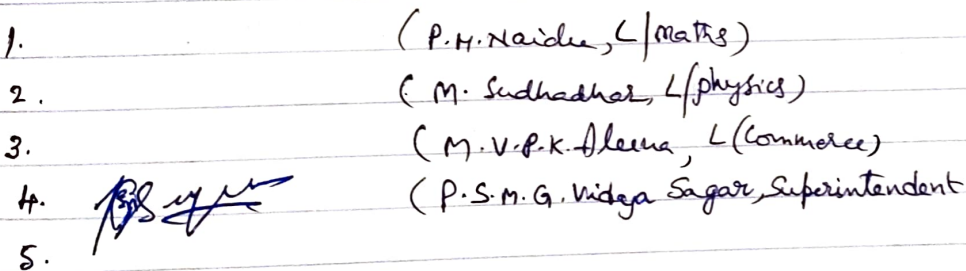 1. (P.H. Naidu, L/maths)
2. (M. Sudhadhar, L/physics)
3. (M.V.P.K. L(Commerce)
4. (P.S.M.G. Vidya Sagar, Superintendent
5.